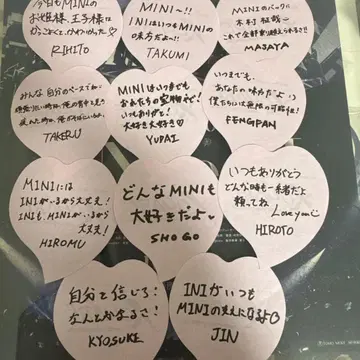 今日もMINIの
お姫様 王子様は
かっこよくて、かわいかった♡
RIHITO
MINI〜!!
INIはいつもMINIの
味方だよ〜!!
TAKUMI
MINIのバックに
木村柾哉
これで全部乗り越えられるさ!!
MASAYA
みんな 自分のペースで
疲れた時は、俺の
TAKERU
MINIはいつまでも
おれたちの宝物です!
いつもありがと!
大好き大好き♡
YUDAI
いつまでも、
あなたの味方だよ。
僕たちには無限の可能性!
FENGFAN
MINIには
INIがいるから大丈夫!
INIも、MINIがいるから
大丈夫!
HIROMU
どんなMINIも
大好きだよ
SHOGO
いつもありがとう
どんな時も一緒だよ
頼ってね
Love you
HIROTO
自分を信じろ!
なんとかなるさ!
KYOSUKE
INIがいつも
MINIの支えになる
JIN